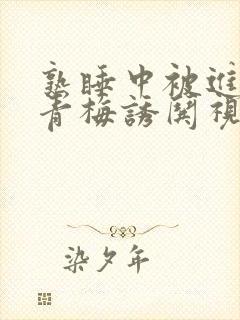 熟睡中被進
青梅誘関視
染夕年